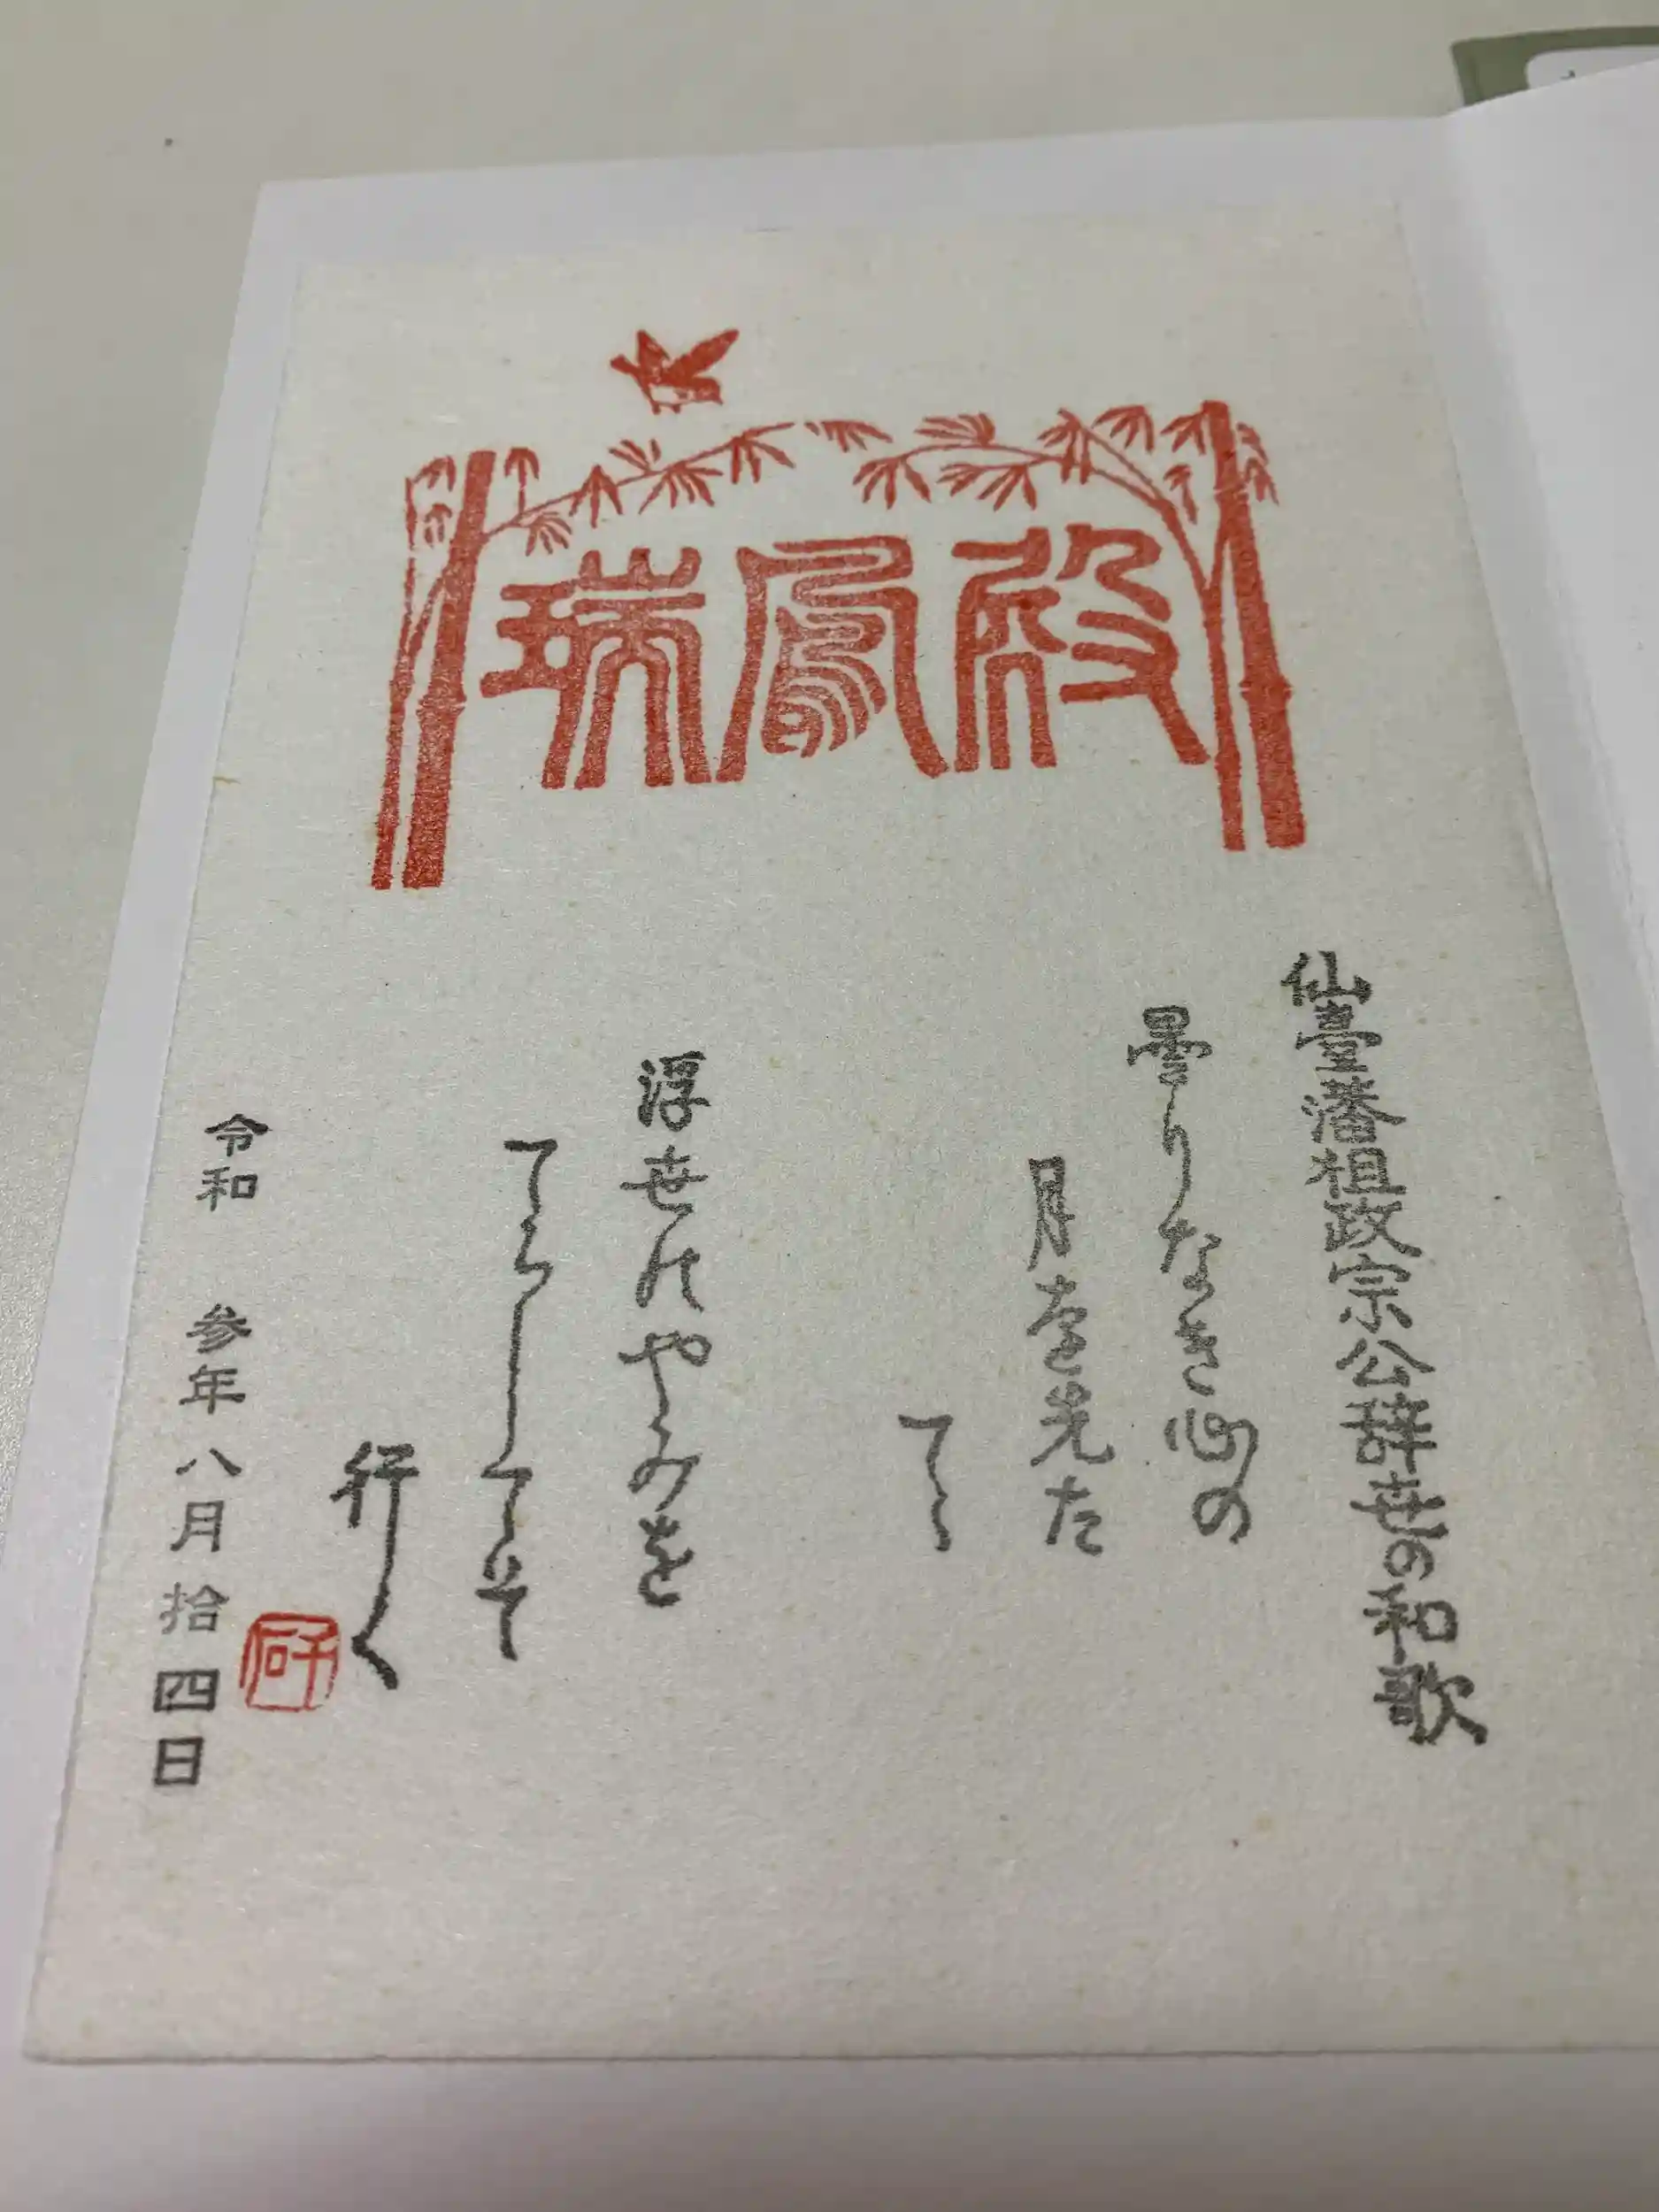 瑞鳳殿
仙臺藩祖政宗公辞世の和歌
曇りなき心の
月を先た
てゝ
浮世のやみを
てらしてそ
行く
令和 参年八月拾四日